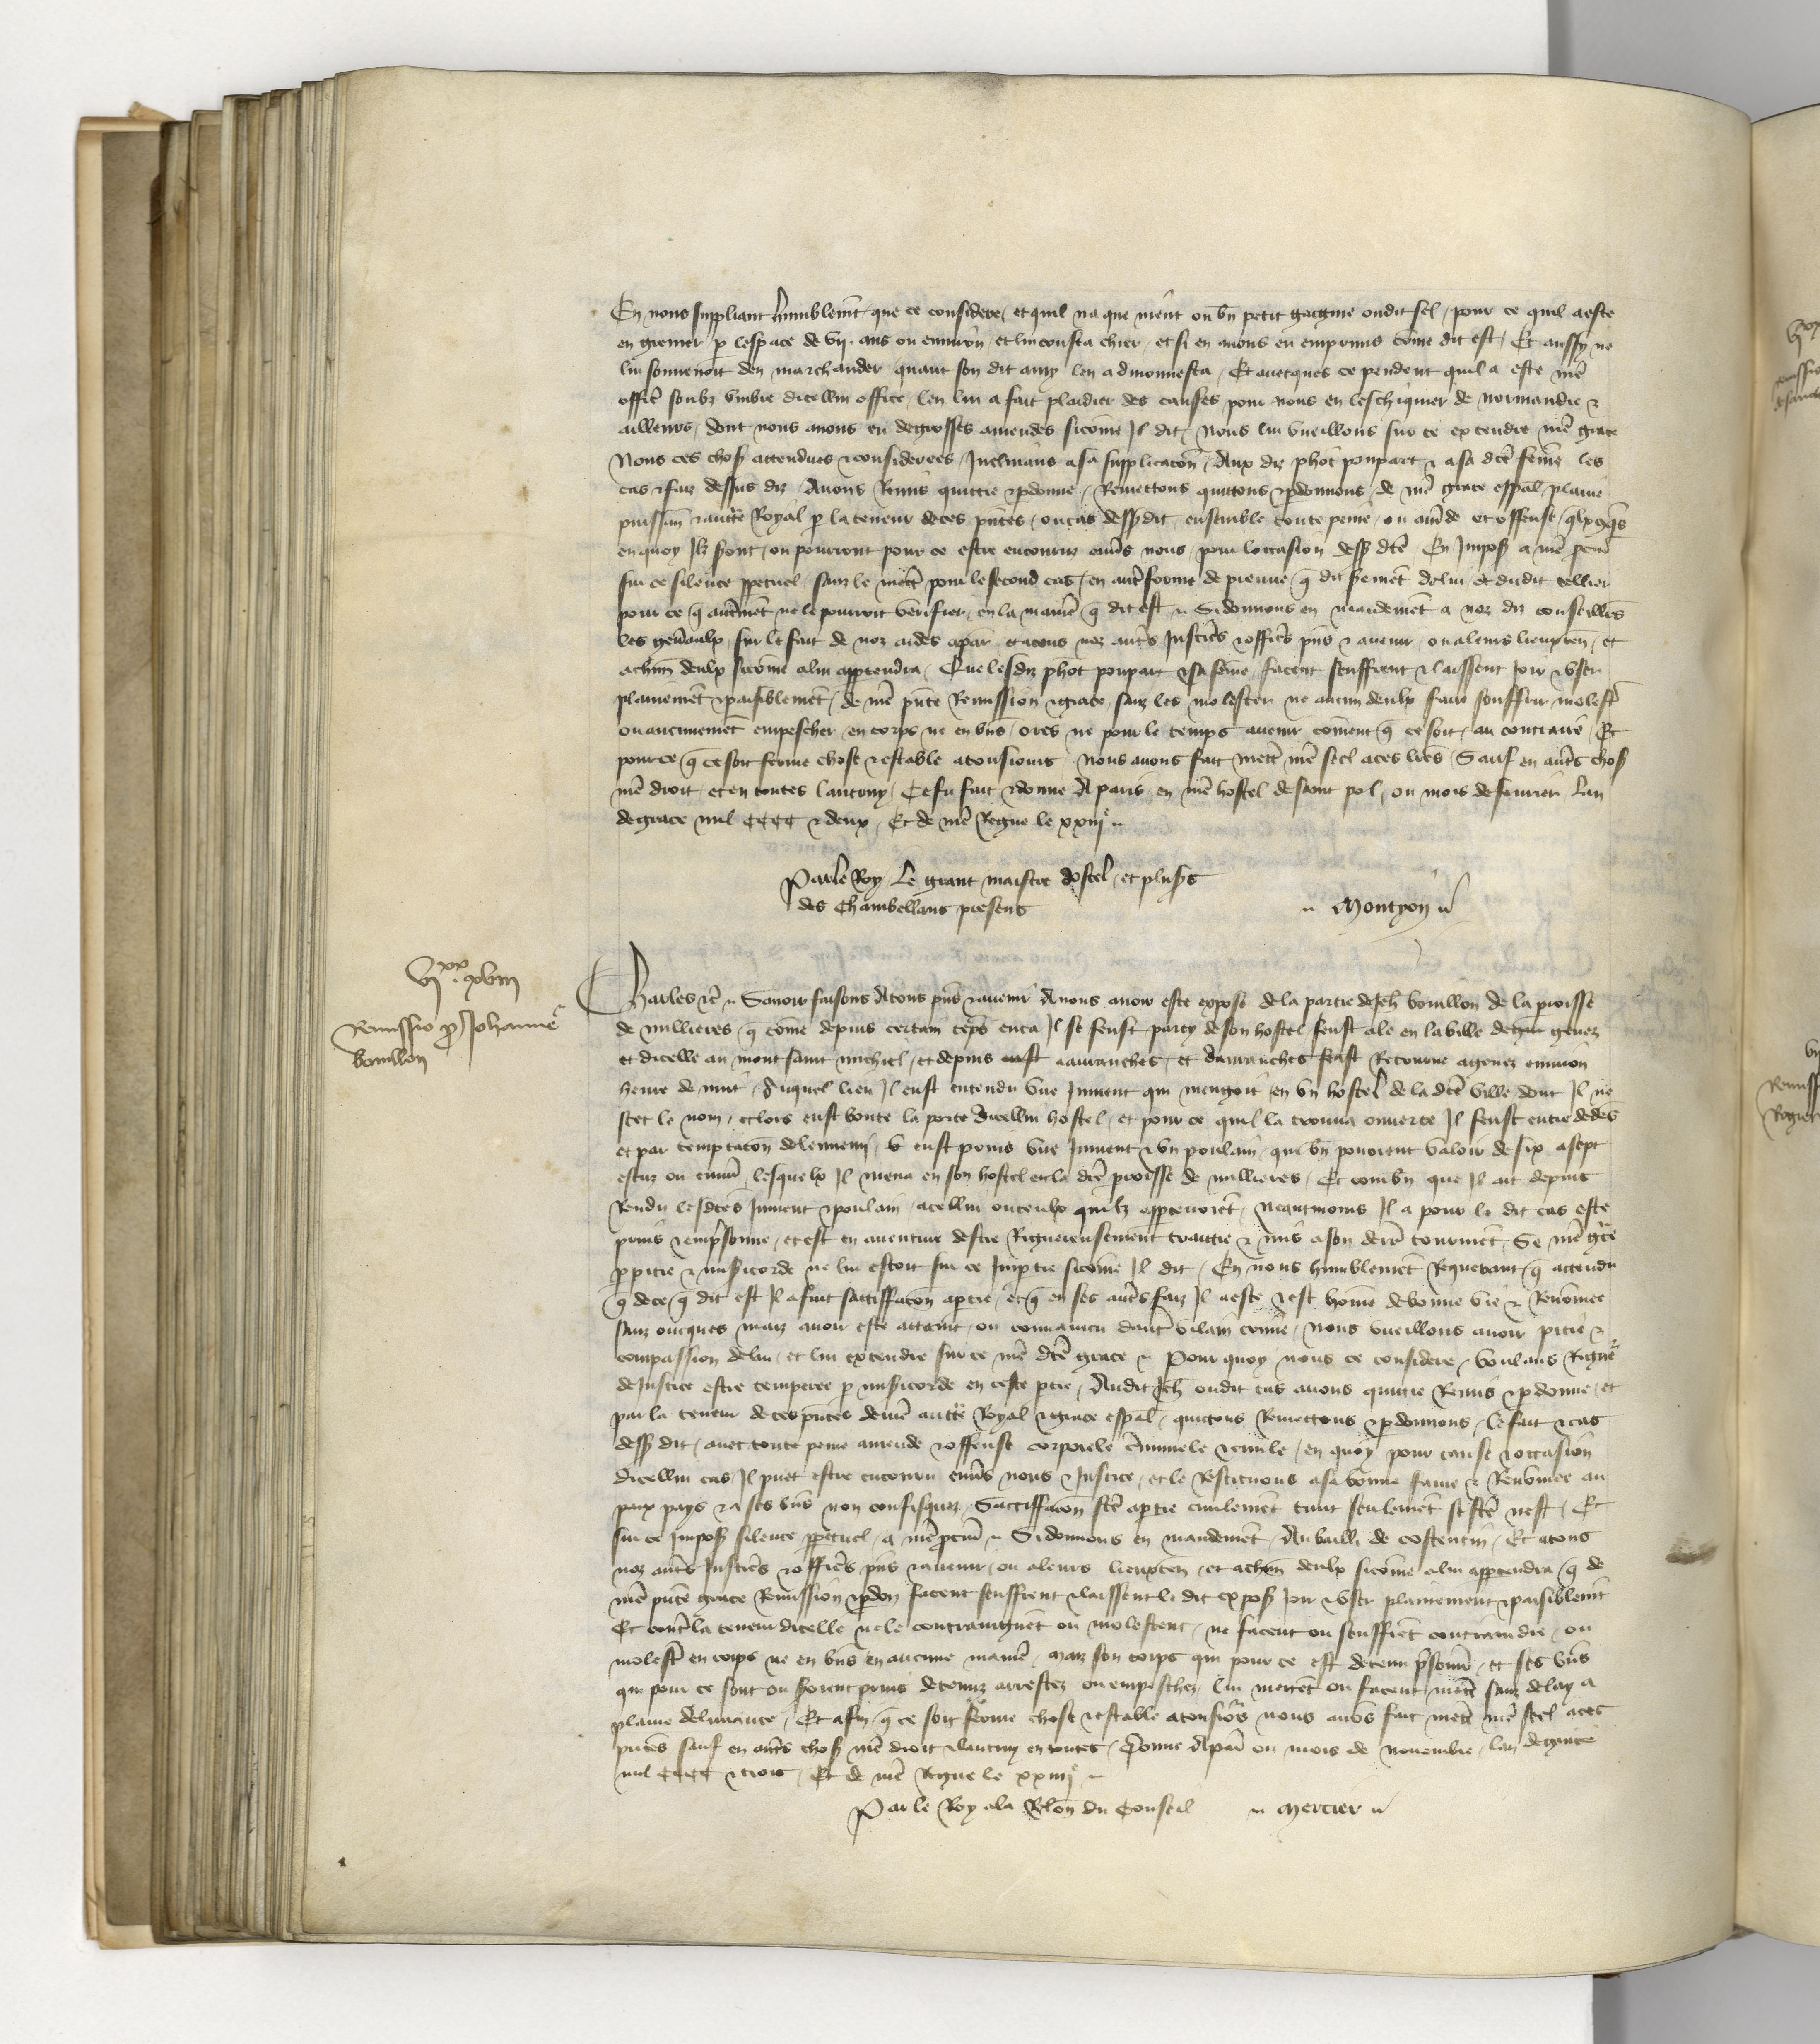 En nous suppliant humblemt que ce considere et quil na que nient ou bn petit gaigne oudit sel pour ce quil a este
en grenier p lespace de vij ans ou environ et lui cousta chier et si en avons eu emprains come dit est Et aussy ne
lui souvenoit den marchander quant son dit amy len admonnesta Et avecques ce pendent quil a este nre
office soubz umbre dicellui office len lui a fait plaidier des causes pour nous en leschiquier de normandie &
ailleurs dont nous avons eu de grosses amendes sicome Il dit Nous lui vueillons sur ce extendre nre grace
Nous ces chos attendues & considerees Inclinans a sa supplicacon Aux diz phot poupart & a sa dcte feme les
cas & faiz dessus diz Avons Remis quictie & pdonne Remettons quictons & pdonnons de nre grace espal plaine
puissan & aucte Royal p la teneur de ces pntes ou cas dessdit ensemble toute peine ou amde et offense
en quoy Ilz sont ou pourront pour ce estre encouruz envs nous pour loccasion dess dte En Impos a nre pcur
sur ce silence ppetuel sanz le mett pour le second cas en aut forme de preuve q dit serment de lui et dudit cellier
pour ce q autment ne le pourroit verifier en la manie q dit est Si donnons en mandemet a noz diz conseillrs
les genaulx sur le fait de noz aides a par et a touz noz auts Justics & offics pns & avenir ou a leurs lieuxten et
a chun deulx sicome a lui apptendra Que les diz phot poupart & sa feme facent seuffrent & laissent joir & user
plainemet & paisiblemet de nre pnte Remission & grace sanz les molester ne aucun deulx faire souffrir molest
ou aucunement empescher en corps ne en bns ores ne pour le temps avenir coment q ce soit au contraire Et
pour ce q ce soit ferme chose & estable a tousiours Nous avons fait mett nre seel a ces lres Sauf en auts chos
nre droit et en toutes lautruy Ce fu fait & donne A paris en nre hostel de saint pol ou mois de fevrier Lan
de grace mil CCCC & deux Et de nre Regne le xxiije
Par le Roy Le grant maistre dostel et plusrs
des Chambellans presens Montyon
vjxx xviij
Remissio p Johanne
bouillon
Charles &c Savoir faisons A tous pns & avenir A nous avoir este expose de la partie de Jeh bouillon de la proisse
de millieres q come depuis certain teps enca Il se feust party de son hostel feust ale en la ville de genez
et dicelle au mont saint michiel et depuis a avranches et davranches feust Retourne a genez environ
heure de nuit Auquel lieu Il eust entendu une Jument qui mengoit en un hostel de la dte ville dont Il ne
scet le nom et lors eust boute la porte dicellui hostel et pour ce quil la trouva ouverte Il feust entre dedes
et par temptacon de lennemi eust prins une Jument & un poulain qui bn povoient valoir de six a sept
escuz ou envir lesquelx Il mena en son hostel en la dte proisse de millieres Et combn que Il ait depuis
Rendu lesdtes Jument & poulain a cellui ou ceulx quilz apptenoient Neantmoins Il a pour le dit cas este
prins & emprisonne et est en aventure destre Rigueureusement traictie & mis a son derre tourmet Se nre gce
ppice & misicorde ne lui estoit sur ce Imptie sicome Il dit En nous humblemet Requerant q attendu
q de ce q dit est Il a fait sattiffacon a ptie & q en ses auts faiz Il a este & est home de bonne vie & Renomee
sanz oncques mais avoir este attaint ou convaincu daut vilain crime Nous vueillons avoir pitie &
compassion de lui et lui extendre sur ce nre dte grace Pour quoy nous ce considere voulans Rigur
de Justice estre tempree p misicorde en ceste ptie Audit Jeh oudit cas avons quictie Remis & pdonne et
par la teneur de ces pntes de nre aucte Royal & grace espal quictons Remettons & pdonnons le fait & cas
dess dit avec toute peine amende & offense corporele criminele & civile en quoy pour cause & occasion
dicellui cas Il puet estre encouru envs nous & Justice et le Restituons a sa bonne fame & Renomee au
paix pays & a ses bns non confisquez Sattiffacon fte a ptie civilement tant seulement se fte nest Et
sur ce Impos silence ppetuel a nre pcur Si donnons en mandemet Au bailli de costentin Et a tous
noz auts Justics & offics pns & avenir ou a leurs lieuxten et a chun deulx sicome a lui apptendra q de
nre pnte grace Remission & pdon facent seuffrent & laissent le dit expos joir & user plainement & paisiblemt
Et cont la teneur dicelle ne le contraingnet ou molestent ne facent ou seuffret contraindre ou
molest en corps ne en bns en aucune manie Maiz son corps qui pour ce est detenu psonn et ses bns
qui pour ce sont ou soient prins detenuz arrestez ou empeschez lui mettet ou facent mett sanz delay a
plaine delivrance Et afin q ce soit ferme chose & estable a tousiors nous avos fait mett nre seel a ces
pntes sauf en auts chos nre droit & lautruy en toutes Donne A par ou mois de novembre Lan de grace
mil CCCC & trois Et de nre Regne le xxiiije
Par le Roy a la Relon du Conseil Mercier